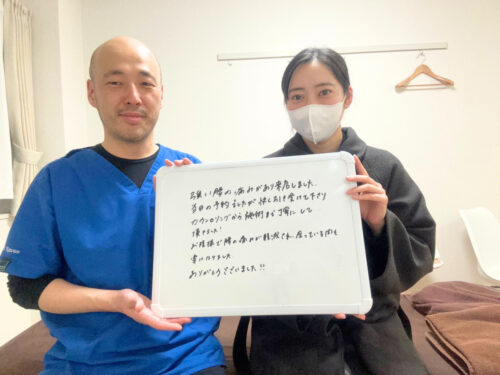 強い腰の痛みがあり来店しました。
当日の予約でしたが快くお引き受けて下さり
カウンセリングから施術まで丁寧にして
頂きました!
お陰様で腰の痛みが軽減され、座っている間も
楽になりました
ありがとうございました!!